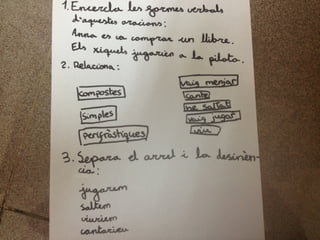 1. Encercla les formes verbals
d'aquestes oracions:
Anna es va comprar un llibre.
Els xiquets jugarien a la pilota.
2. Relaciona:
vaig menjar
compostes
cante
he saltat
simples
vaig jugar
perifràstiques
3. Separa el arrel i la desinèn-
cia:
jugarem
saltem
viuriem
cantarieu